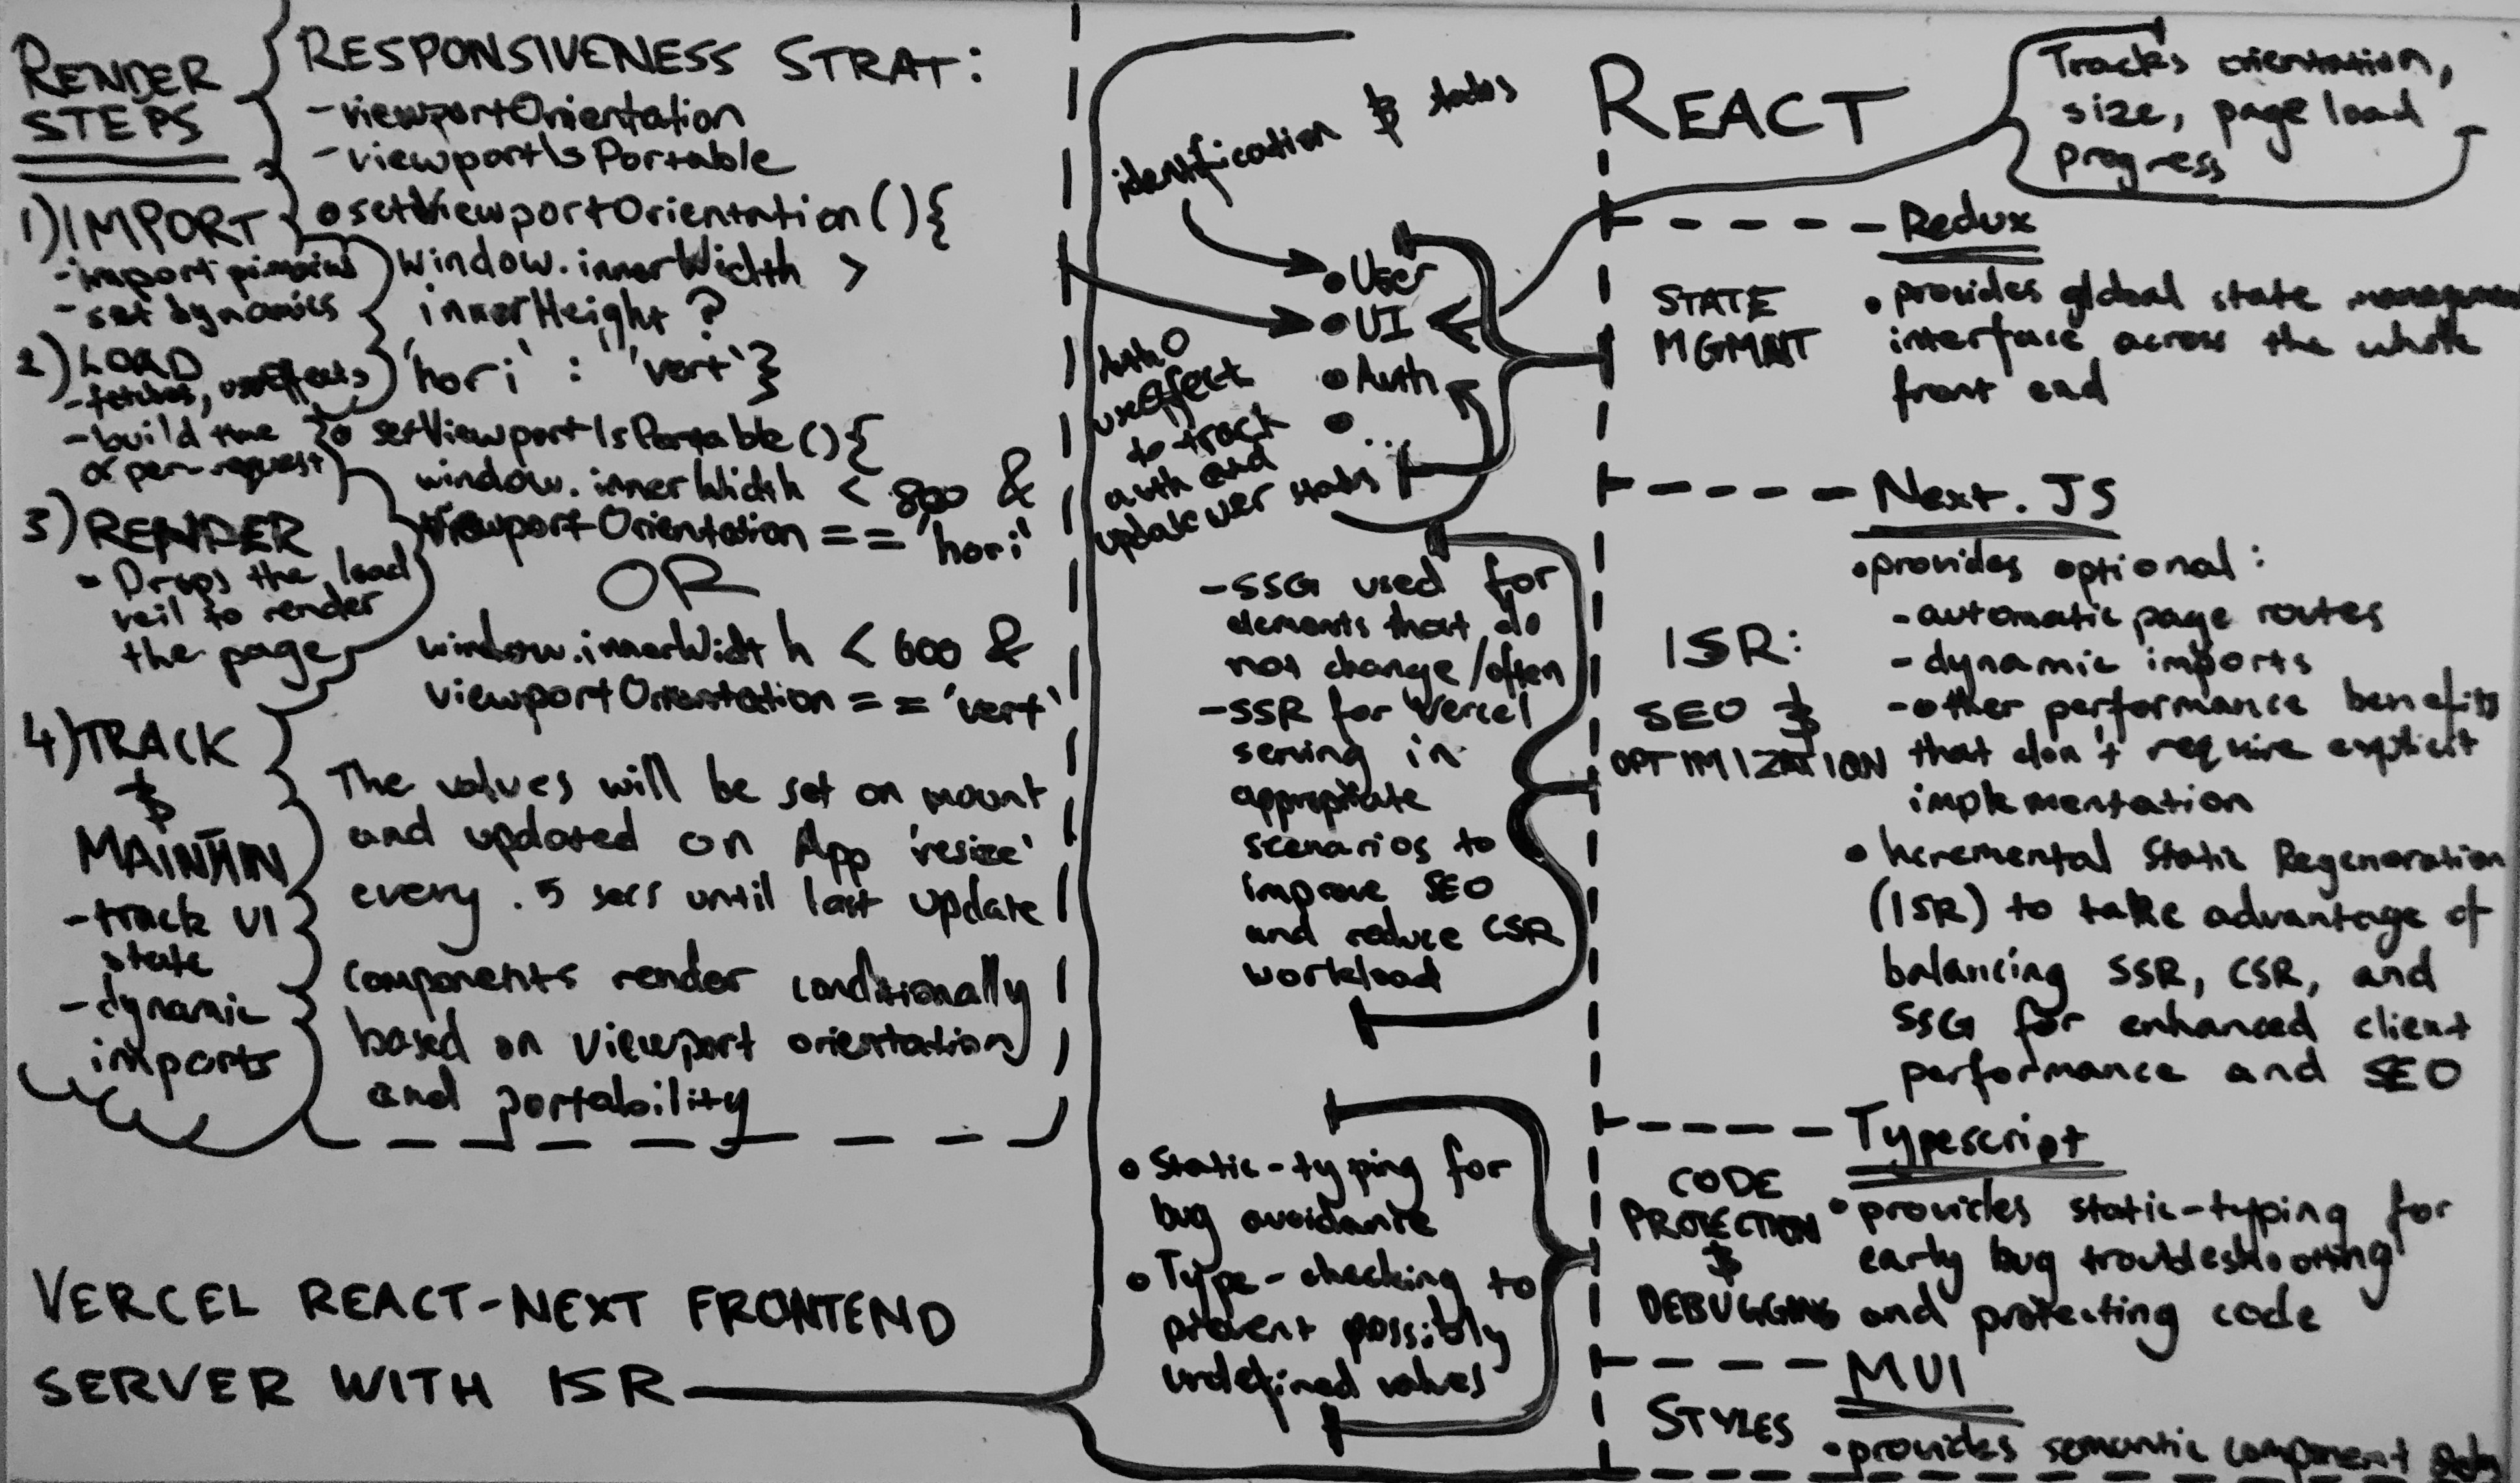 RENDER
STEPS
1) IMPORT
- import
- set dynamics
2) LOAD
- fetches, useEffects,
- build time
or per-request
3) RENDER
- Drops the load
veil to render
the page
4) TRACK
&
MAINTAIN
- track UI
state
- dynamic
imports
RESPONSIVENESS STRAT:
- viewportOrientation
- viewportIsPortable
• setViewportOrientation(){
window.innerWidth >
innerHeight ?
'hori' : 'vert'}
• setViewportIsPortable(){
window.innerWidth < 800 &
viewportOrientation == 'hori'
OR
window.innerWidth < 600 &
viewportOrientation == 'vert'
The values will be set on mount
and updated on App 'resize'
every .5 secs until last update
Components render conditionally
based on viewport orientation
and portability
VERCEL REACT-NEXT FRONTEND
SERVER WITH ISR
identification & status
• User
• UI
• Auth
• ...
Auth0
useEffect
to track
auth and
update user status
- SSG used for
elements that do
not change/often
- SSR for Vercel
serving in
appropriate
scenarios to
improve SEO
and reduce CSR
workload
• Static-typing for
bug avoidance
• Type-checking to
prevent possibly
undefined values
REACT
Tracks orientation,
size, page load
progress
Redux
STATE
MGMNT
• provides global state management
interface across the whole
front end
Next.JS
• provides optional:
- automatic page routes
- dynamic imports
- other performance benefits
that don't require explicit
implementation
ISR:
SEO &
OPTIMIZATION
• Incremental Static Regeneration
(ISR) to take advantage of
balancing SSR, CSR, and
SSG for enhanced client
performance and SEO
Typescript
CODE
PROTECTION
&
DEBUGGING
• provides static-typing for
early bug troubleshooting
and protecting code
MUI
STYLES
• provides semantic component